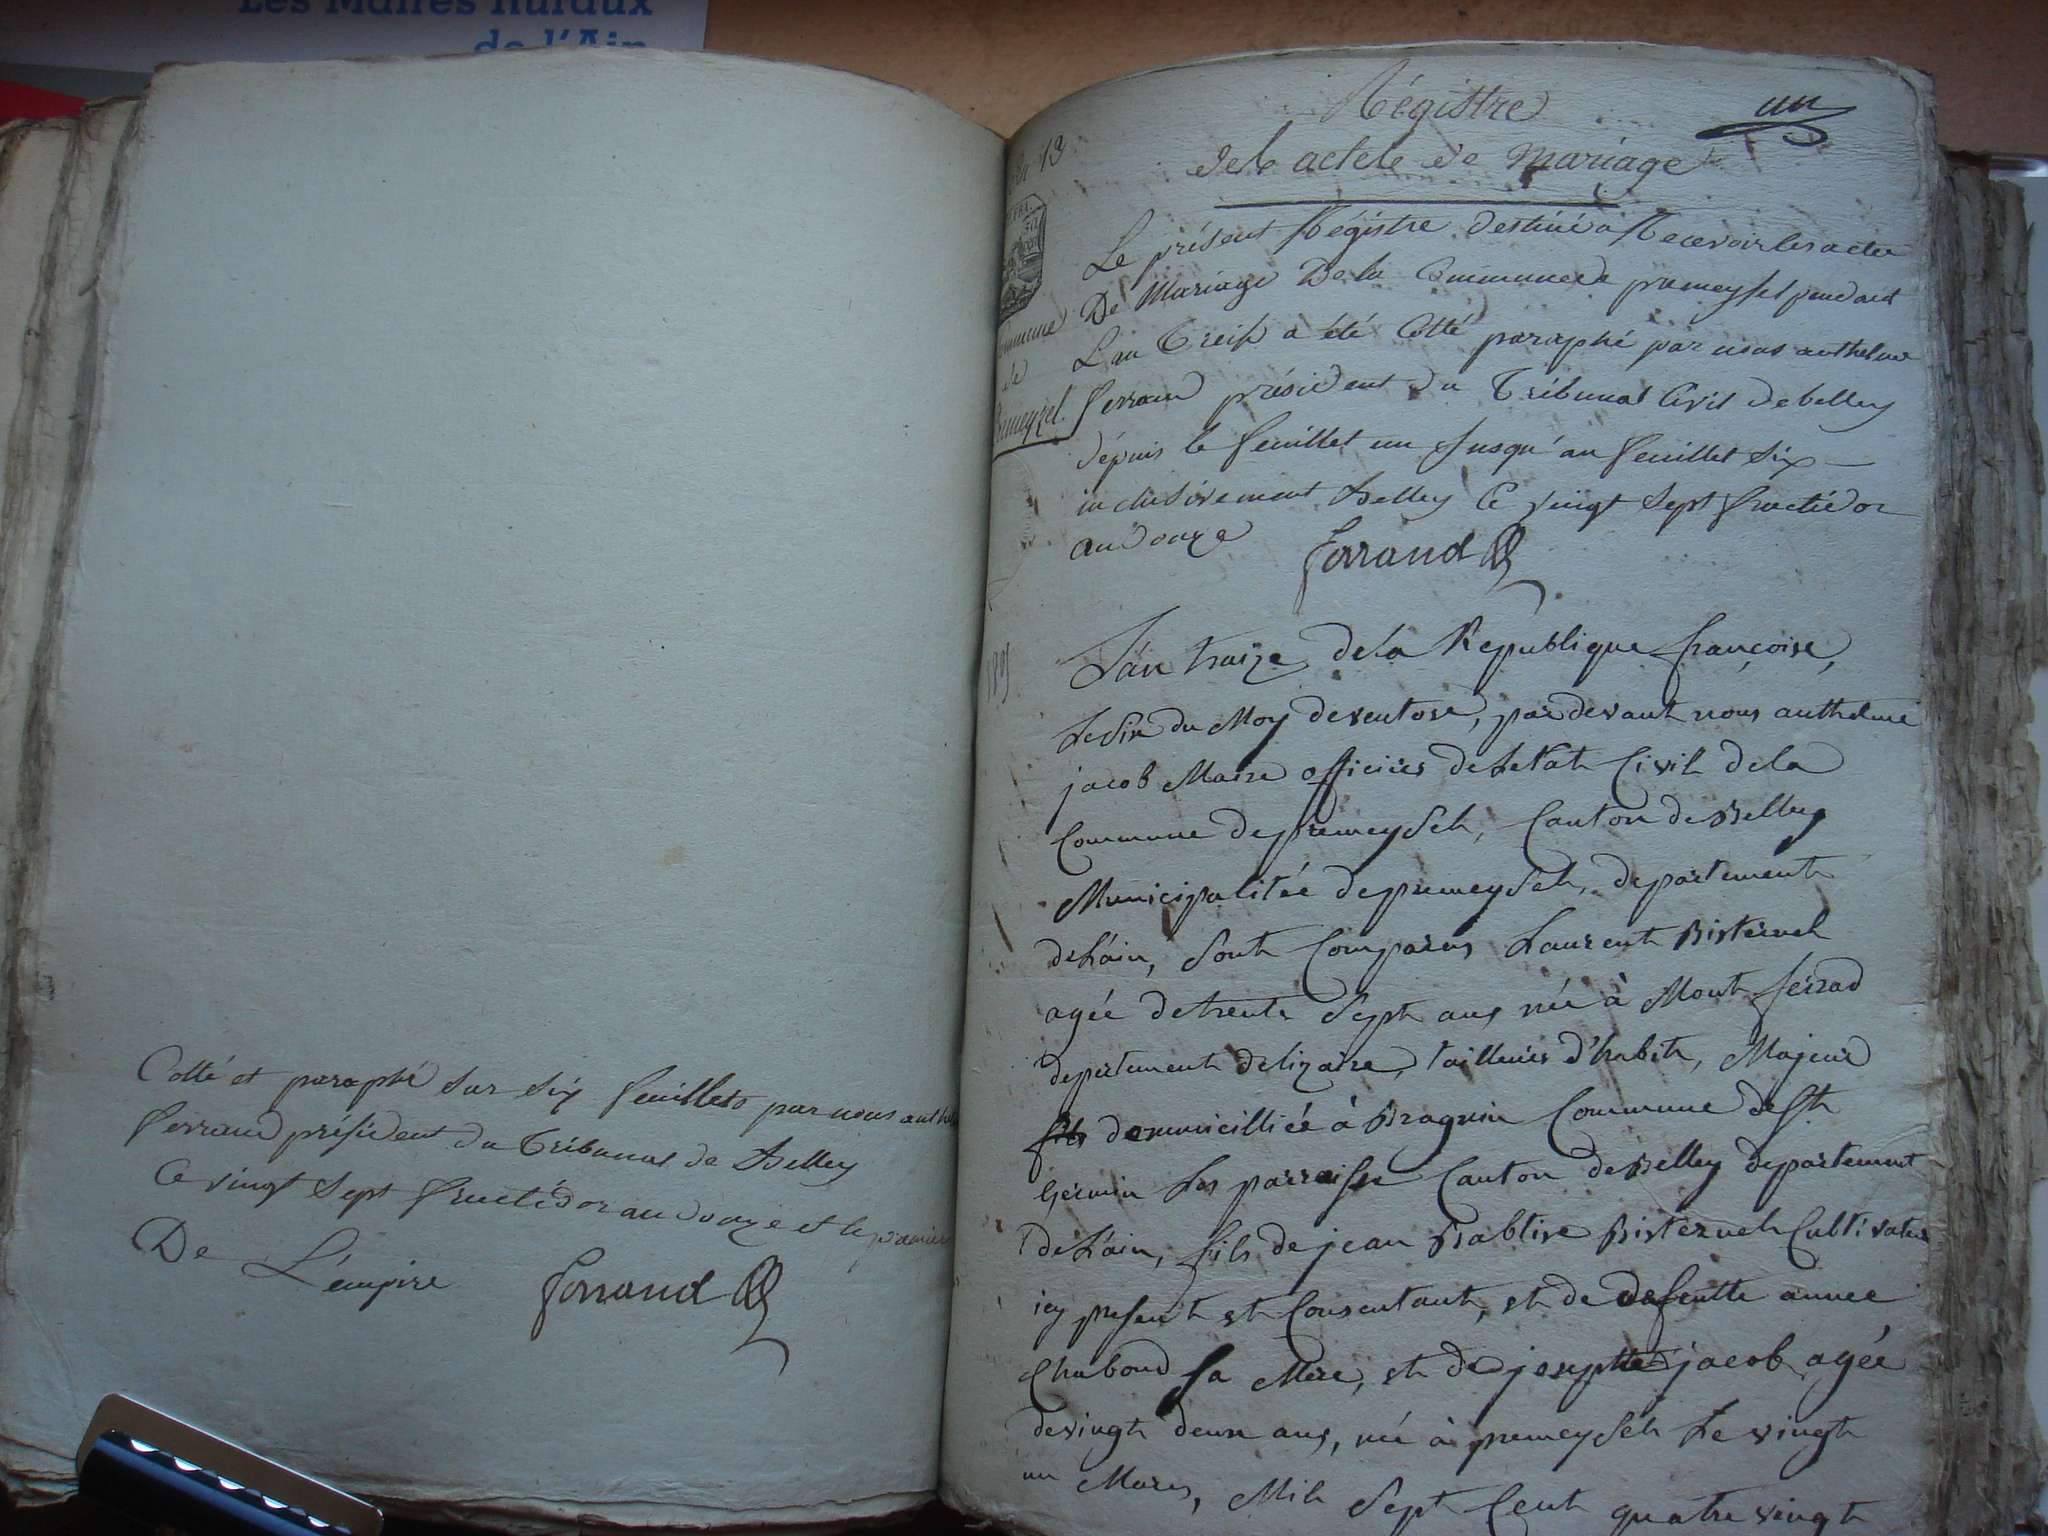 Les Maires Ruraux
de l'Ain
Cotté et paraphé sur six feuillets par nous anthe
ferrand président du tribunal de Belley
Ce vingt sept fructidor an douze et le premier
De L'empire ferrand
an 13
un
Régistre
des actes de Mariage
Commune
de
Premeyzel.
Le présent Régistre destiné à Recevoir les actes
De Mariage De la Commune de premeysel pendant
L'an treize a été Cotté paraphé par nous anthelme
ferrand président du Tribunal Civil de belley
dépuis le feuillet un Jusqu'au feuillet six
inclusivement Belley Ce vingt sept fructidor
an douze ferrand
1805
L'an traize de la Republique françoise,
le six du Moy de ventose, par devant nous anthelme
jacob Maire officiier de Letat Civil de la
Commune de premeysel, Canton de Belley
Municipalitée de premeysel, departement
de L'ain, sont Comparus Laurent Bisternel
agée de trente sept ans née à Mont ferrad
departement de lizaire, tailleur d'habit, Majeur
fils dommicilliée à Bragnin Commune de St
Germin Les parroisse Canton de Belley departement
de L'ain, fils de jean Babtise Bisternel Cultivateur
icy present et Consentant, et de defeutte annee
Chaboud sa Mere, et de josephte jacob agée
de vingt deux ans, née à premeysel Le vingt
un Mars, Mil sept Cent quatre vingt